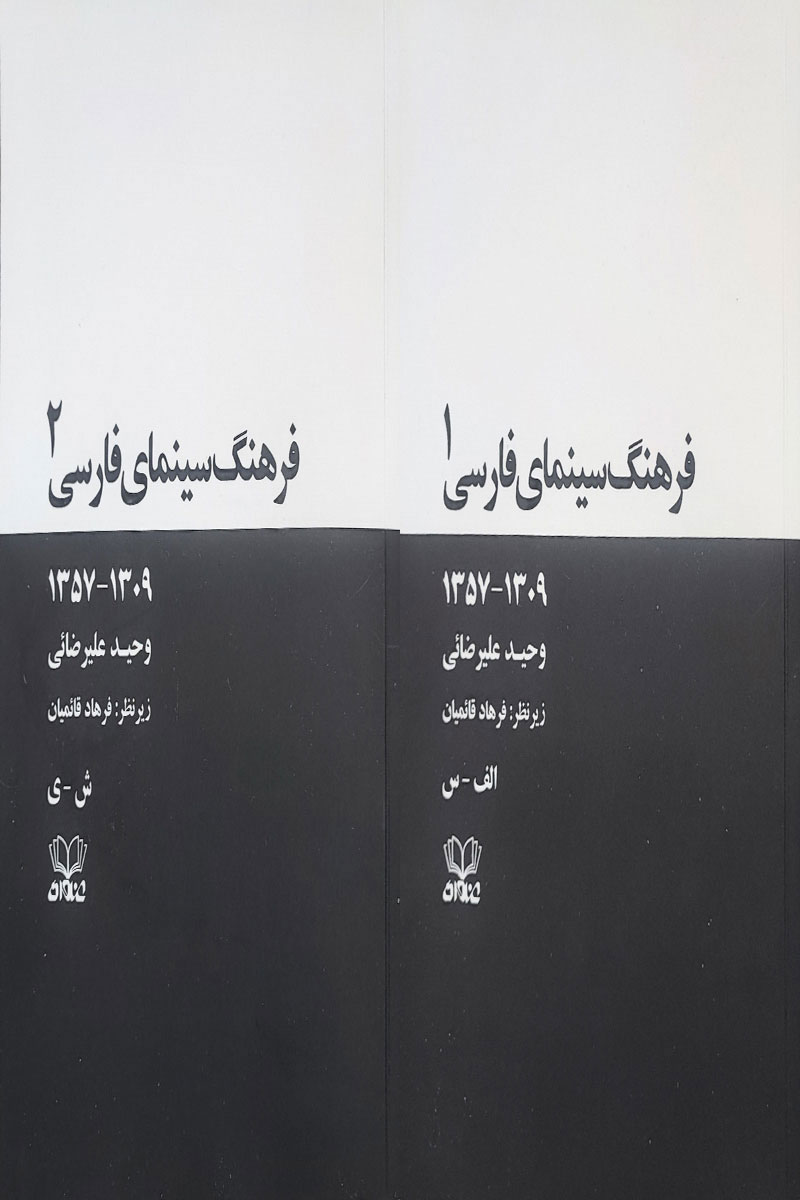 فرهنگ سینمای فارسی ۱
۱۳۰۹-۱۳۵۷
وحید علیرضائی
زیر نظر: فرهاد قائمیان
الف - س
عنوان
فرهنگ سینمای فارسی ۲
۱۳۰۹-۱۳۵۷
وحید علیرضائی
زیر نظر: فرهاد قائمیان
ش - ی
عنوان